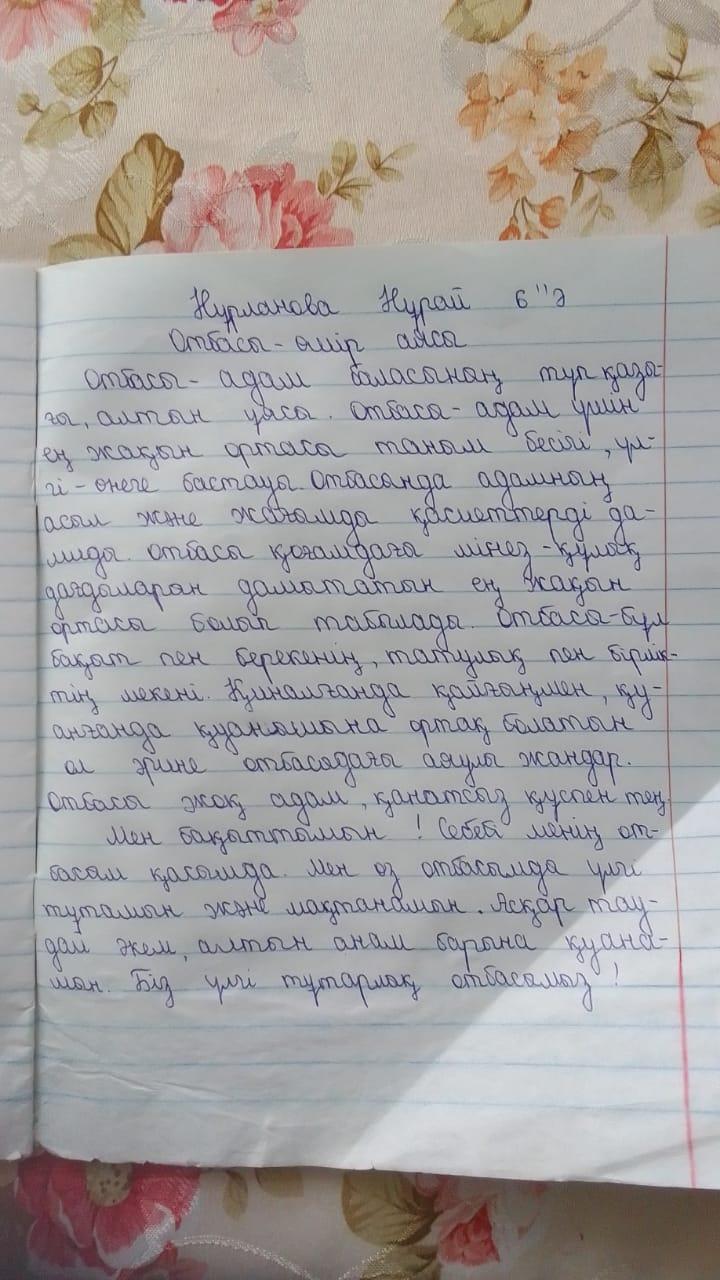 Нұрланова Нұрай 6 "Ә
Отбасы-өмір аясы
Отбасы - адам баласының түп қазы-
ғы, алтын ұясы. Отбасы - адам үшін
ең жақын ортасы таным бесігі, үл-
гі - өнеге бастауы. Отбасында адамның
асыл және жағымды қасиеттерді да-
миды. Отбасы қоғамдағы мінез-құлық
дағдыларын дамытатын ең жақын
ортасы болып табылады. Отбасы-бұл
бақыт пен берекенің, татулық пен бірлік-
тің мекені. Қиналғанда қайғыңмен, қу-
анғанда қуанышына ортақ болатын
ол әрине отбасыдағы аяулы жандар.
Отбасы жоқ адам, қанатсыз құспен тең.
Мен бақыттымын! Себебі менің от-
басым қасымда. Мен өз отбасымды үлгі
тұтамын және мақтанамын. Асқар тау-
дай әкем, алтын анам барына қуана-
мын. Біз үлгі тұтарлық отбасымыз!